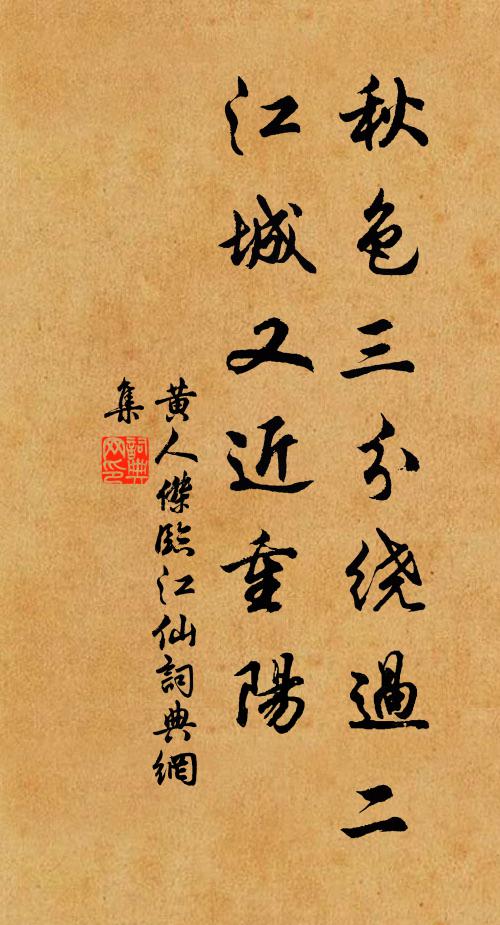 秋色三分绕過二
江城又近重陽
黄人傑臨江仙詞典網
集
詞典網印